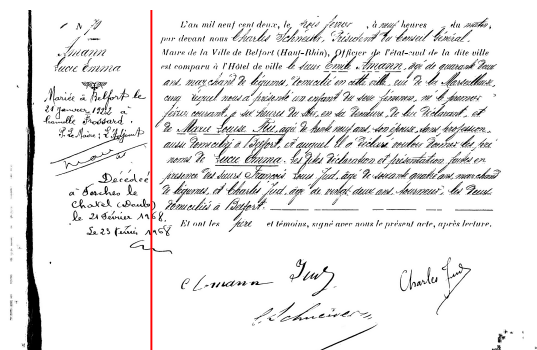 N° 79
Amann
Lucie Emma
Mariée à Belfort le
21 janvier 1922 à
Camille Frossard
P. Le Maire; L'Adjoint
Décédée
à Torches le
Chatel (Doubs)
le 21 Février 1968
Le 23 Février 1968
L'an mil neuf cent deux, le trois février, à neuf heures du matin,
par devant nous Charles Schneider, Président du Conseil Général.
Maire de la Ville de Belfort (Haut-Rhin), Officier de l'état-civil de la dite ville
est comparu à l'Hôtel de ville le sieur Emile Amann, âgé de quarante deux
ans, marchand de légumes, domicilié en cette ville rue de la Marseillaise,
cinq lequel nous a présenté un enfant du sexe féminin, né le premier
février courant, à six heures du soir, en sa demeure, de lui déclarant, et
de Marie Louise, âgée de trente neuf ans, son épouse, sans profession,
aussi domiciliée à Belfort, et auquel il a déclaré vouloir donner les pré
noms de Lucie Emma. Les dites déclaration et présentation faites en
présence des sieurs François Louis Jud, âgé de soixante quatre ans, marchand
de légumes, et Charles Jud, âgé de vingt deux ans, tourneur, les deux
domiciliés à Belfort.
Et ont les père et témoins, signé avec nous le présent acte, après lecture.
Amann Jud Charles Jud
Schneider